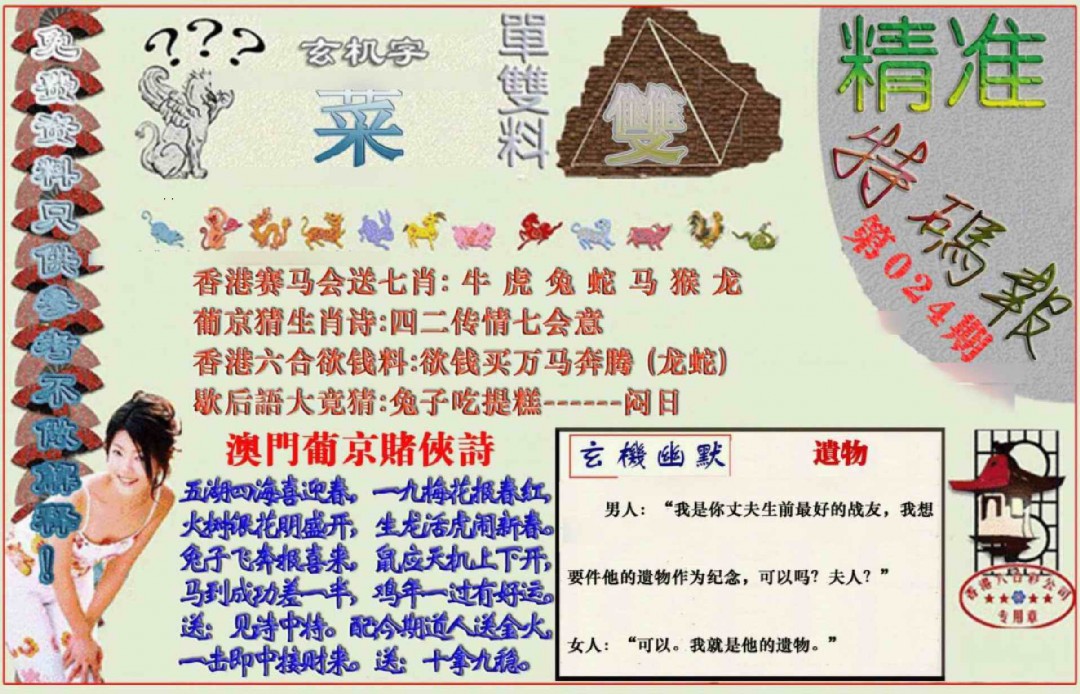 免费资料只供参考不做解释！
???
玄机字
菜
單雙料
雙
精准
特碼報
第024期
香港赛马会送七肖: 牛 虎 兔 蛇 马 猴 龙
葡京猜生肖诗:四二传情七会意
香港六合欲钱料:欲钱买万马奔腾 (龙蛇)
歇后語大竟猜:兔子吃提糕------闷日
澳門葡京賭俠詩
五湖四海喜迎春，一九梅花报春红，
火树银花明盛开，生龙活虎闹新春。
兔子飞奔报喜来，鼠应天机上下开，
马到成功差一半，鸡年一过有好运。
送：见诗中特。配今期道人送金火，
一击即中接财来。送：十拿九稳。
玄機幽默
遺物
男人：“我是你丈夫生前最好的战友，我想
要件他的遗物作为纪念，可以吗？夫人？”
女人：“可以。我就是他的遗物。”
香港六合彩公司
专用章